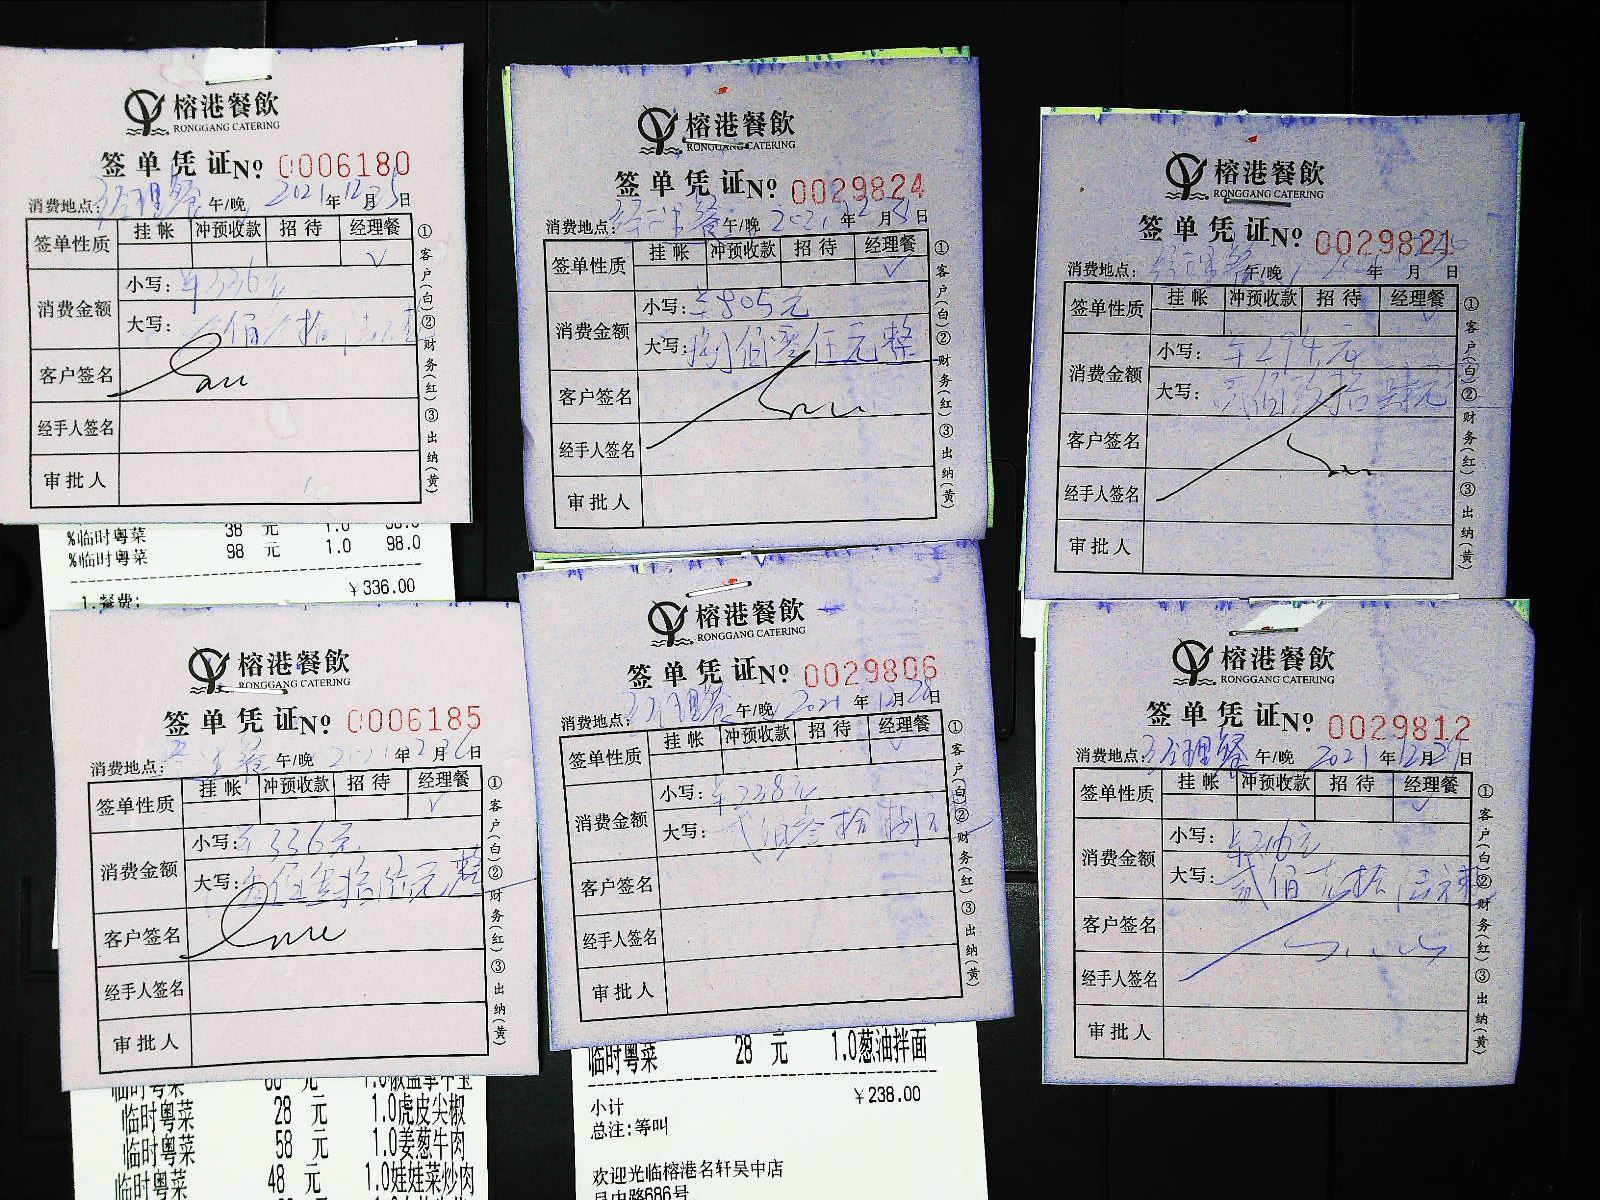 榕港餐飲
RONGGANG CATERING
签单凭证№ 0006180
消费地点: 经理餐 午/晚 2021年12月5日
签单性质 挂帐 冲预收款 招待 经理餐
√
消费金额 小写: ¥336元
大写:
客户签名
经手人签名
审批人
①客户(白)②财务(红)③出纳(黄)
%临时粤菜 38 元 1.0 38.0
%临时粤菜 98 元 1.0 98.0
¥336.00
1.餐费:
榕港餐飲
RONGGANG CATERING
签单凭证№ 0029824
消费地点: 经理餐 午/晚 2021年12月8日
签单性质 挂帐 冲预收款 招待 经理餐
√
消费金额 小写: ¥805元
大写: 捌佰零伍元整
客户签名
经手人签名
审批人
①客户(白)②财务(红)③出纳(黄)
榕港餐飲
RONGGANG CATERING
签单凭证№ 0029821
消费地点: 经理餐 午/晚 年 月 日
签单性质 挂帐 冲预收款 招待 经理餐
√
消费金额 小写: ¥294元
大写: 贰佰玖拾肆元
客户签名
经手人签名
审批人
①客户(白)②财务(红)③出纳(黄)
榕港餐飲
RONGGANG CATERING
签单凭证№ 0006185
消费地点: 经理餐 午/晚 2021年2月6日
签单性质 挂帐 冲预收款 招待 经理餐
√
消费金额 小写: ¥336元
大写: 佰叁拾陆元整
客户签名
经手人签名
审批人
①客户(白)②财务(红)③出纳(黄)
临时粤菜 元
临时粤菜 28 元 1.0虎皮尖椒
临时粤菜 58 元 1.0姜葱牛肉
临时粤菜 48 元 1.0娃娃菜炒肉
榕港餐飲
RONGGANG CATERING
签单凭证№ 0029806
消费地点: 经理餐 午/晚 2021年12月28日
签单性质 挂帐 冲预收款 招待 经理餐
√
消费金额 小写: ¥238元
大写: 贰佰叁拾捌元
客户签名
经手人签名
审批人
①客户(白)②财务(红)③出纳(黄)
临时粤菜 28 元 1.0葱油拌面
小计 ¥238.00
总注:等叫
欢迎光临榕港名轩吴中店
吴中路686号
榕港餐飲
RONGGANG CATERING
签单凭证№ 0029812
消费地点: 经理餐 午/晚 2021年12月29日
签单性质 挂帐 冲预收款 招待 经理餐
√
消费金额 小写:
大写: 贰佰 拾 元
客户签名
经手人签名
审批人
①客户(白)②财务(红)③出纳(黄)